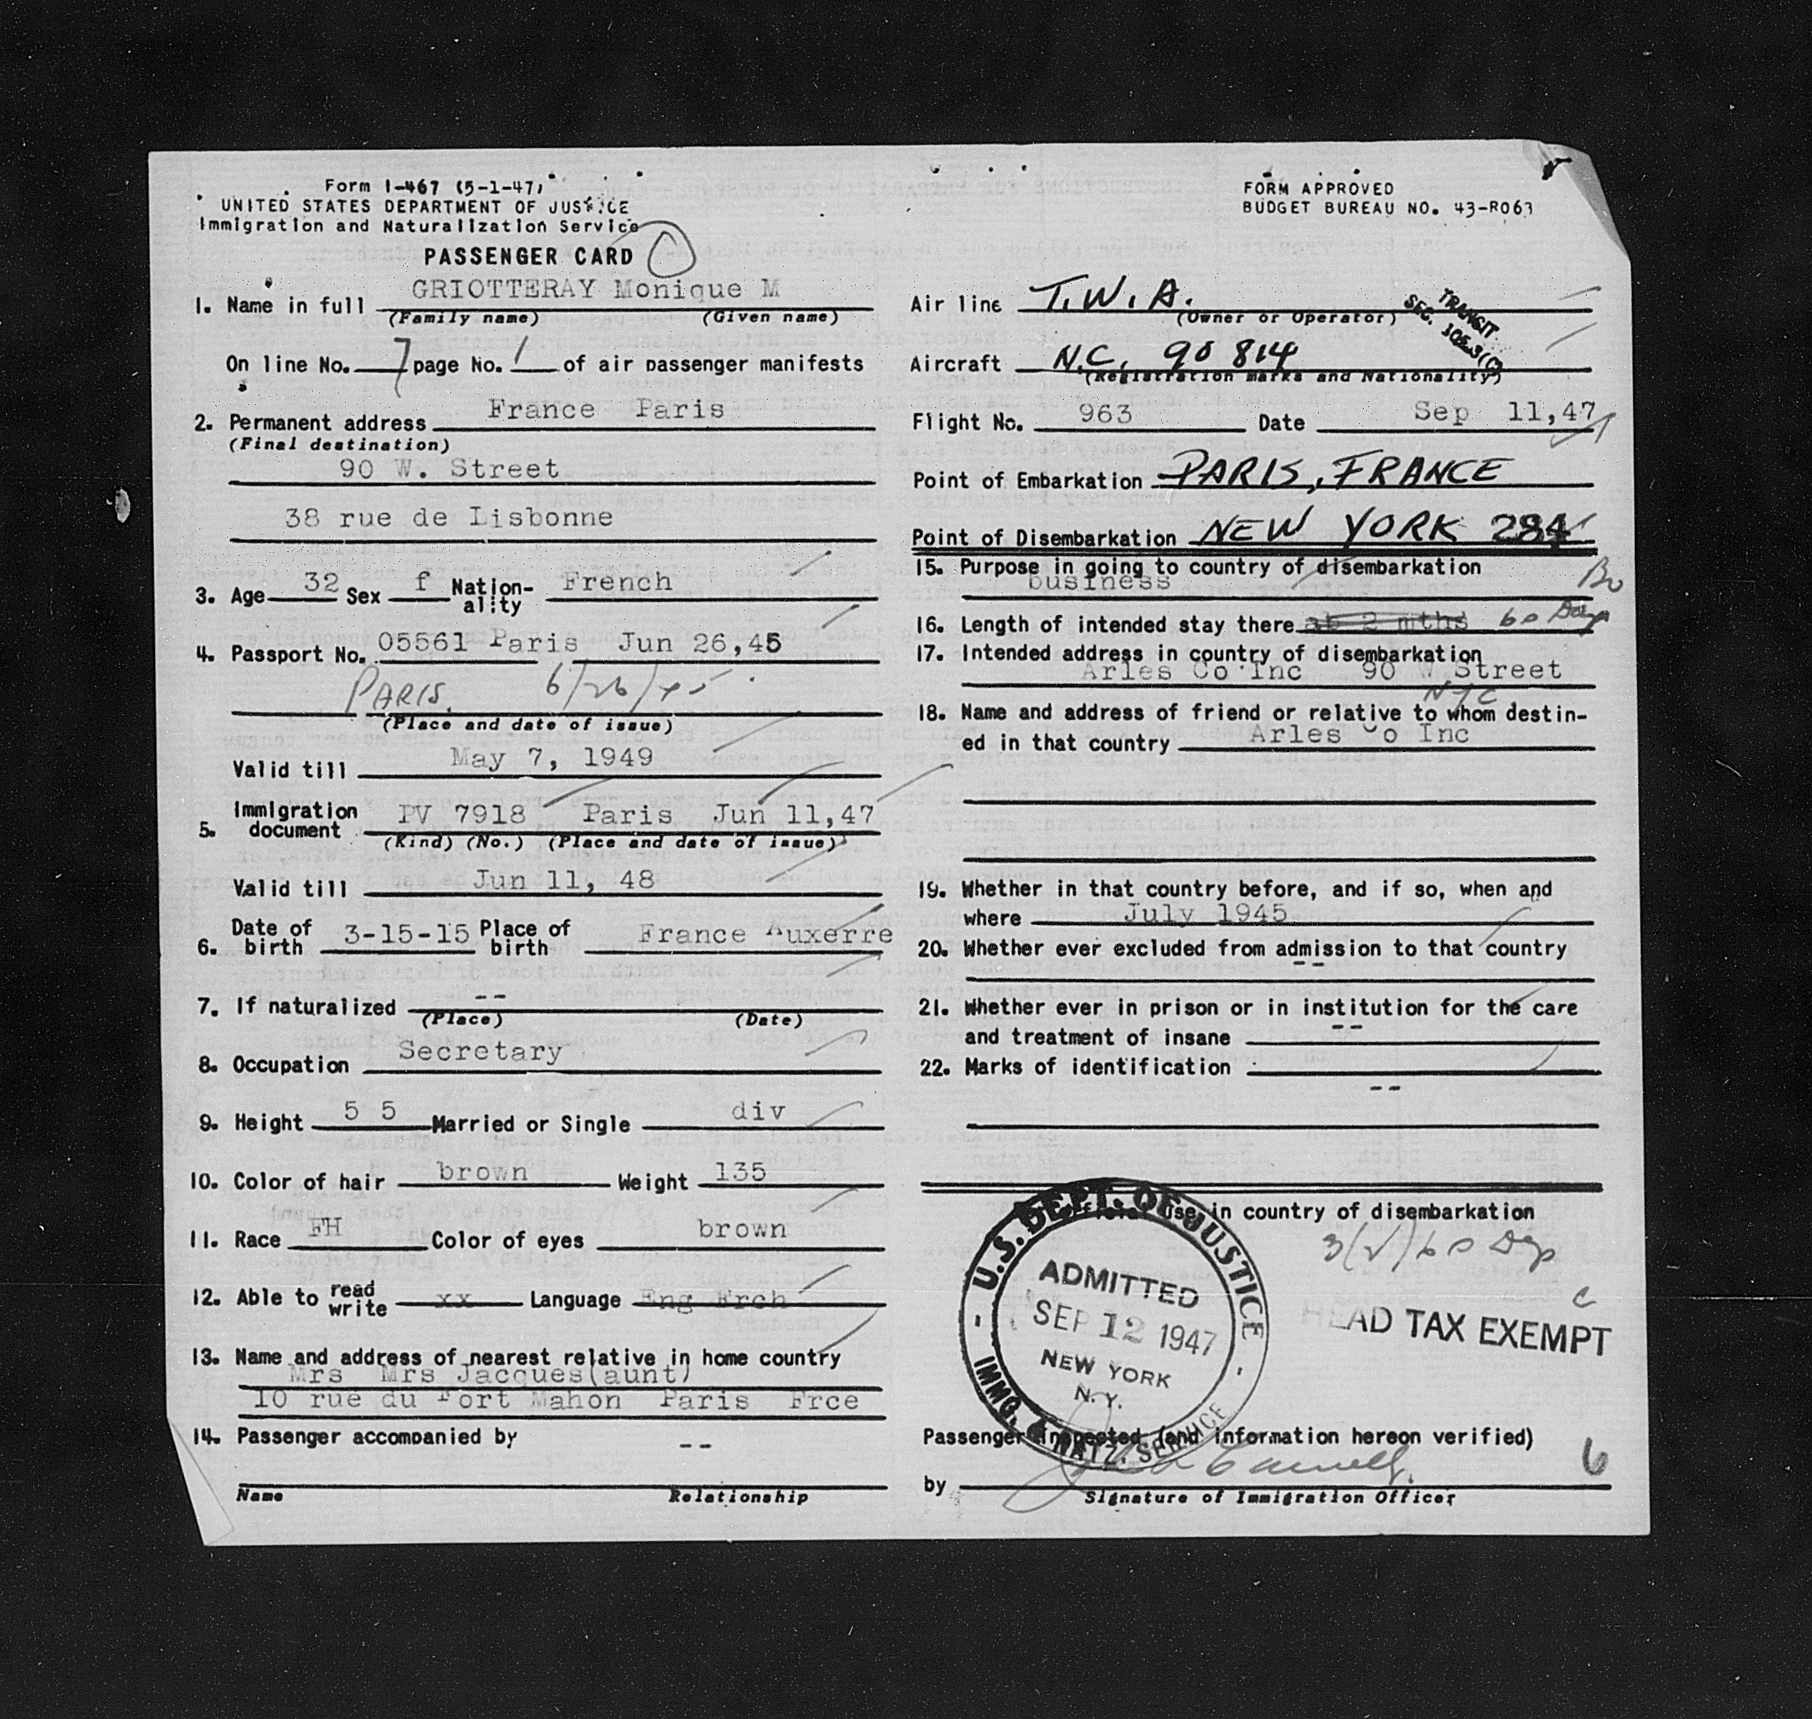 Form I-467 (5-1-47)
UNITED STATES DEPARTMENT OF JUSTICE
Immigration and Naturalization Service
PASSENGER CARD
FORM APPROVED
BUDGET BUREAU NO. 43-R063
1. Name in full GRIOTTERAY Monique M
(Family name) (Given name)
On line No. 7 page No. 1 of air passenger manifests
2. Permanent address France Paris
(Final destination)
90 W. Street
38 rue de Lisbonne
3. Age 32 Sex f Nation-ality French
4. Passport No. 05561 Paris Jun 26,45
PARIS. 6/26/45
(Place and date of issue)
Valid till May 7, 1949
5. Immigration document PV 7918 Paris Jun 11,47
(Kind) (No.) (Place and date of issue)
Valid till Jun 11, 48
6. Date of birth 3-15-15 Place of birth France Auxerre
7. If naturalized --
(Place) (Date)
8. Occupation Secretary
9. Height 5 5 Married or Single div
10. Color of hair brown Weight 135
11. Race FH Color of eyes brown
12. Able to read write xx Language Eng Frch
13. Name and address of nearest relative in home country
Mrs Mrs Jacques(aunt)
10 rue du Fort Mahon Paris Frce
14. Passenger accompanied by --
Name Relationship
Air line T.W.A.
(Owner or Operator)
TRANSIT
SEC. 105.3(C)
Aircraft N.C. 90814
(Registration marks and Nationality)
Flight No. 963 Date Sep 11,47
Point of Embarkation PARIS, FRANCE
Point of Disembarkation NEW YORK 284
15. Purpose in going to country of disembarkation
business
16. Length of intended stay there ab 2 mths 60 Days
17. Intended address in country of disembarkation
Arles Co Inc 90 W Street
NYC
18. Name and address of friend or relative to whom destin-
ed in that country Arles Co Inc
19. Whether in that country before, and if so, when and
where July 1945
20. Whether ever excluded from admission to that country
--
21. Whether ever in prison or in institution for the care
and treatment of insane --
22. Marks of identification
--
official use in country of disembarkation
3(2) 60 Days
U.S. DEPT. OF JUSTICE
ADMITTED
SEP 12 1947
NEW YORK
N.Y.
IMMG. & NATZ. SERVICE
HEAD TAX EXEMPT
Passenger inspected (and information hereon verified)
6
by
Signature of Immigration Officer